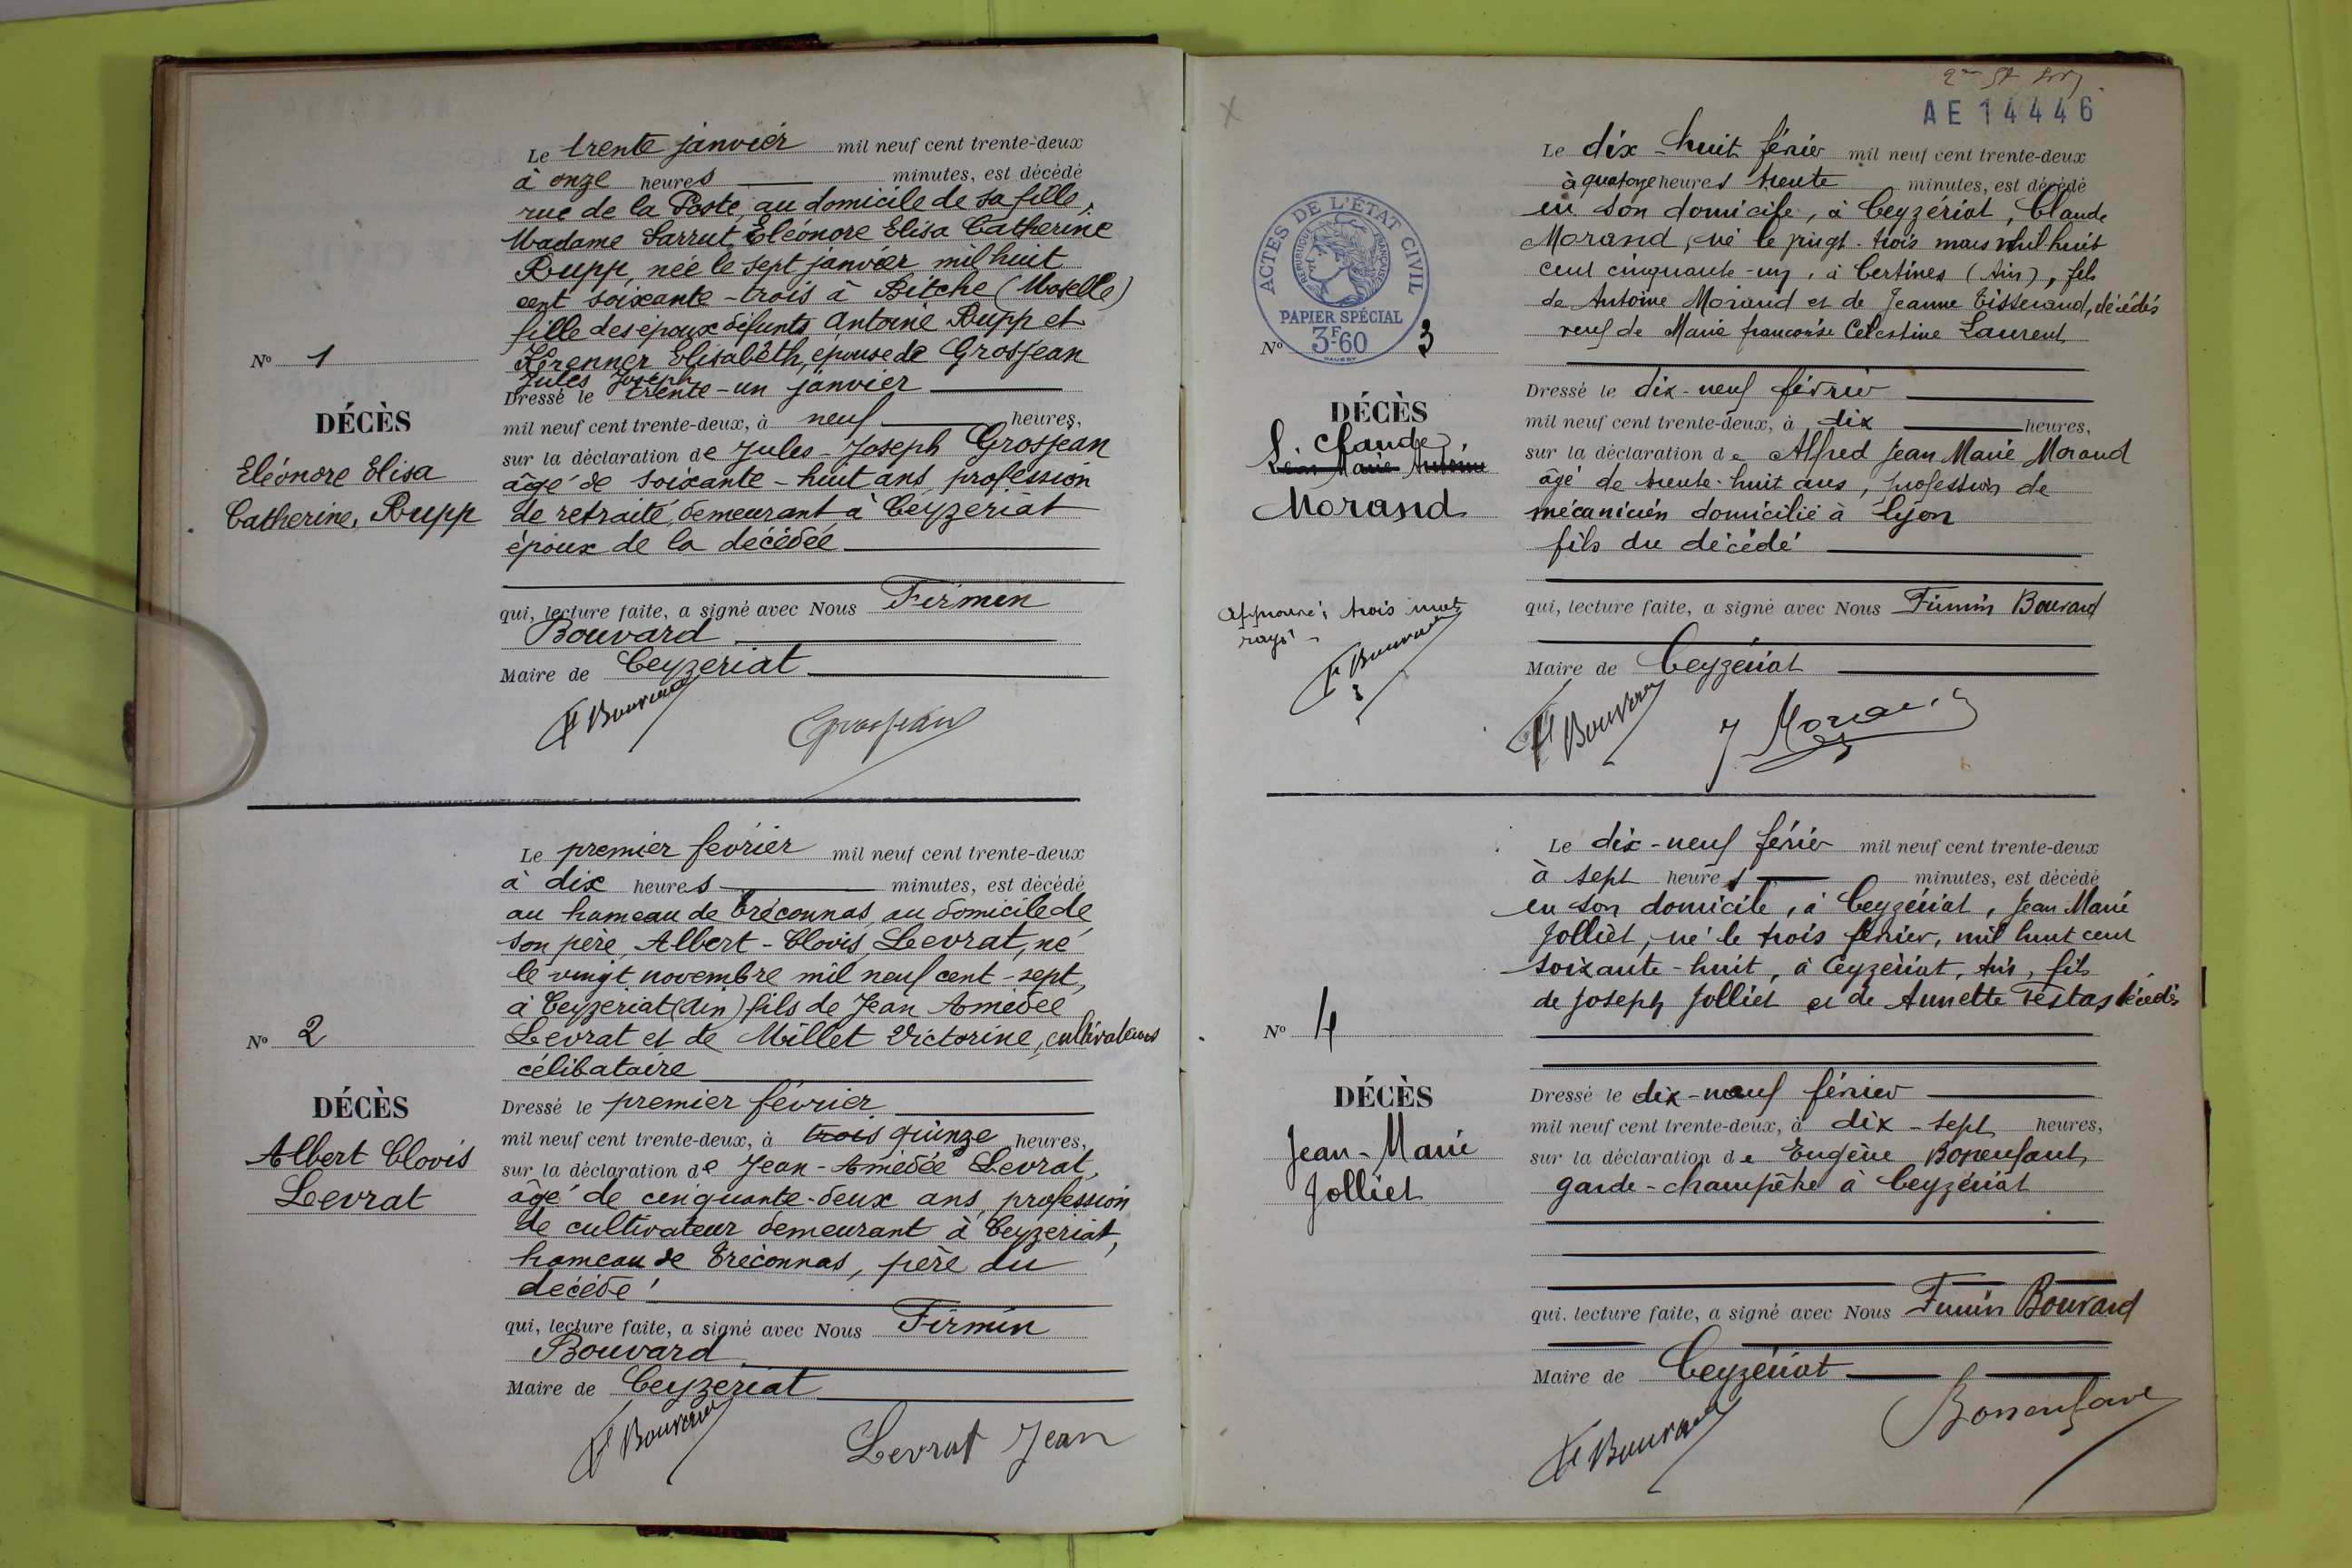 Le trente janvier mil neuf cent trente-deux
à onze heures minutes, est décédé
rue de la Poste, au domicile de sa fille,
Madame Sarrut, Eléonore Elisa Catherine
Rupp, née le sept janvier mil huit
cent soixante-trois à Bitche (Moselle)
fille des époux défunts Antoine Rupp et
Krenner Elisabeth, épouse de Grosjean
Jules Joseph
Dressé le trente-un janvier
mil neuf cent trente-deux, à neuf heures,
sur la déclaration de Jules-Joseph Grosjean
âgé de soixante-huit ans, profession
de retraité, demeurant à Ceyzeriat
époux de la décédée
qui, lecture faite, a signé avec Nous Firmin
Bouvard
Maire de Ceyzeriat
F Bouvard
Grosjean
No 1
DÉCÈS
Eléonore Elisa
Catherine, Rupp
Le premier février mil neuf cent trente-deux
à dix heures minutes, est décédé
au hameau de Tréconnas, au domicile de
son père, Albert-Clovis, Levrat, né
le vingt novembre mil neuf cent-sept,
à Ceyzeriat (Ain) fils de Jean Amédée
Levrat et de Millet Victorine, cultivateurs
célibataire
Dressé le premier février
mil neuf cent trente-deux, à trois quinze heures,
sur la déclaration de Jean-Amédée Levrat,
âgé de cinquante-deux ans, profession
de cultivateur demeurant à Ceyzeriat,
hameau de Tréconnas, père du
décédé
qui, lecture faite, a signé avec Nous Firmin
Bouvard
Maire de Ceyzeriat
F Bouvard
Levrat Jean
No 2
DÉCÈS
Albert Clovis
Levrat
AE 14446
Le dix-huit février mil neuf cent trente-deux
à quatorze heures trente minutes, est décédé
en son domicile, à Ceyzériat, Claude
Morand, né le vingt-trois mars mil huit
cent cinquante-un, à Certines (Ain), fils
de Antoine Morand et de Jeanne Tisserand, décédés
veuf de Marie françoise Célestine Laurent
Dressé le dix-neuf février
mil neuf cent trente-deux, à dix heures,
sur la déclaration de Alfred Jean Marie Morand
âgé de trente-huit ans, profession de
mécanicien domicilié à Lyon
fils du décédé
qui, lecture faite, a signé avec Nous Firmin Bouvard
Maire de Ceyzériat
F Bouvard
J Morand
ACTES DE L'ÉTAT CIVIL
RÉPUBLIQUE FRANÇAISE
PAPIER SPÉCIAL
3F60
No 3
DÉCÈS
Claude
Léon Marie Antoine
Morand
Approuvé; trois mots
rayés
F Bouvard
Le dix-neuf février mil neuf cent trente-deux
à sept heures minutes, est décédé
en son domicile, à Ceyzériat, Jean Marie
Jolliet, né le trois février, mil huit cent
soixante-huit, à Ceyzériat, Ain, fils
de Joseph Jolliet et de Annette Testas décédés
Dressé le dix-neuf février
mil neuf cent trente-deux, à dix-sept heures,
sur la déclaration de Eugène Bonenfant,
garde-champêtre à Ceyzériat
qui, lecture faite, a signé avec Nous Firmin Bouvard
Maire de Ceyzériat
F Bouvard
Bonenfant
No 4
DÉCÈS
Jean-Marie
Jolliet